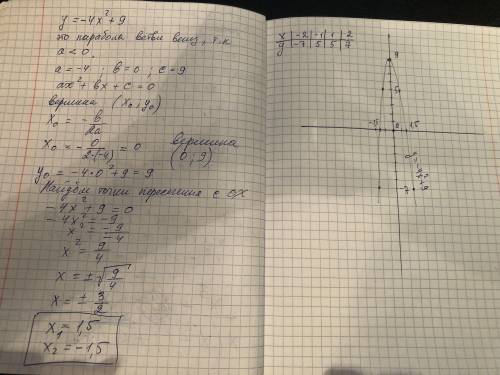 y = -4x² + 9
это парабола ветви вниз, т.к
a < 0.
a = -4 ; b = 0 ; c = 9
ax² + bx + c = 0
вершина (x₀; y₀)
x₀ = -b/2a
x₀ = -0/2·(-4) = 0 вершина
(0; 9)
y₀ = -4·0² + 9 = 9
Найдём точки пересечения с OX
-4x² + 9 = 0
-4x² = -9
x² = -9/-4
x² = 9/4
x = ±√9/4
x = ± 3/2
x₁ = 1,5
x₂ = -1,5
x | -2 | -1 | 1 | 2
y | -7 | 5 | 5 | 7
9
5
-1,5 0 1,5
-7
y = -4x² + 9